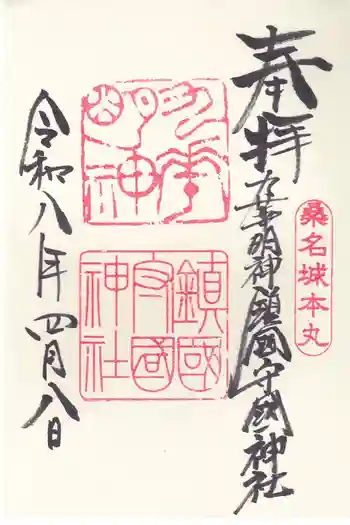 奉拝
九華明神 鎮國守國神社
桑名城本丸
九華
明神
鎮國
守國
神社
令和八年四月八日